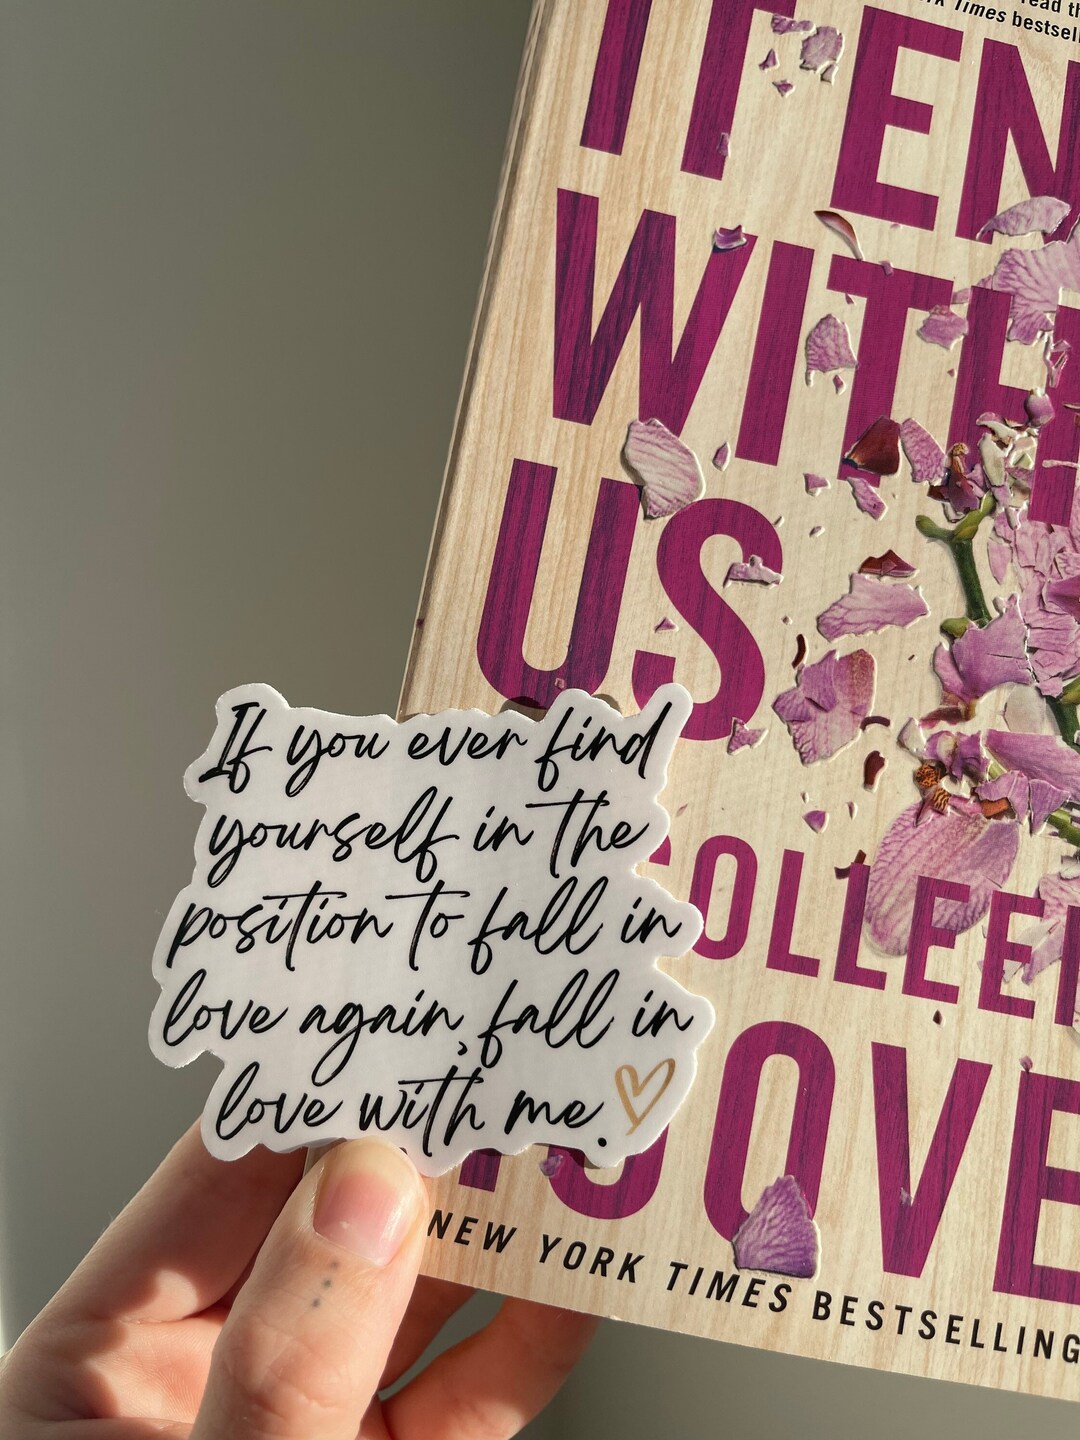 read th
rk Times bestsell
IT EN
WITH
US
COLLEEN
HOOVE
NEW YORK TIMES BESTSELLING
If you ever find
yourself in the
position to fall in
love again, fall in
love with me.